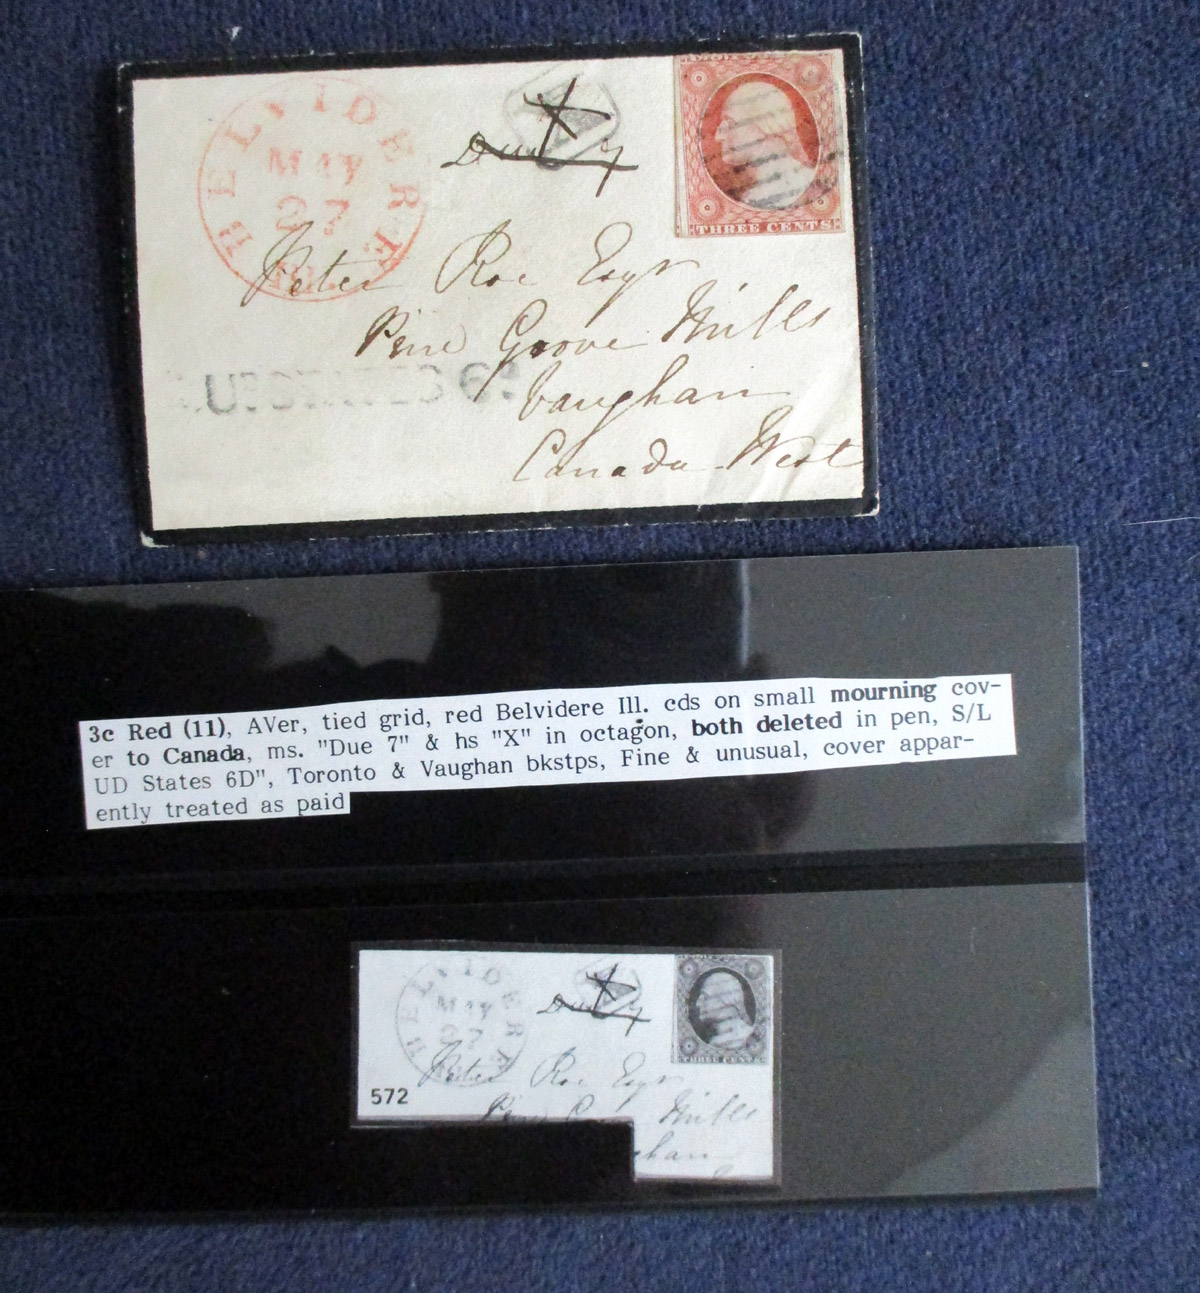 BELVIDERE
MAY
27
Ill.
Due 7
X
THREE CENTS
Peter Roe Esqr
Pine Grove Mills
Vaughan
Canada West
3c Red (11), AVer, tied grid, red Belvidere Ill. cds on small mourning cov-
er to Canada, ms. "Due 7" & hs "X" in octagon, both deleted in pen, S/L
UD States 6D", Toronto & Vaughan bkstps, Fine & unusual, cover appar-
ently treated as paid
BELVIDERE
MAY
27
Due 7
THREE CENTS
Peter Roe Esqr
Mills
572